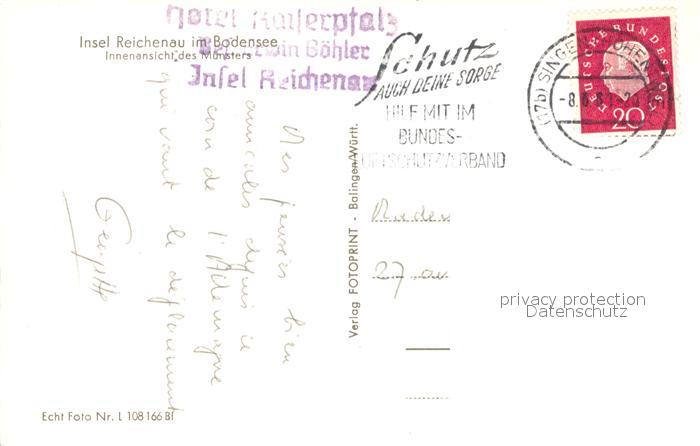 Hotel Kaiserpfalz
Bes. Erwin Böhler
Insel Reichenau
Insel Reichenau im Bodensee
Innenansicht des Münsters
Schutz
AUCH DEINE SORGE
HILF MIT IM
BUNDES-
LUFTSCHUTZVERBAND
(17b) SINGEN (HOHENTWIEL)
DEUTSCHE BUNDESPOST
20
Mes pensées bien
amicales depuis ce
coin de l'Allemagne
qui vaut le déplacement
Georgette
Verlag FOTOPRINT - Balingen/Württ.
27 av
privacy protection
Datenschutz
Echt Foto Nr. L 108 166 Bf